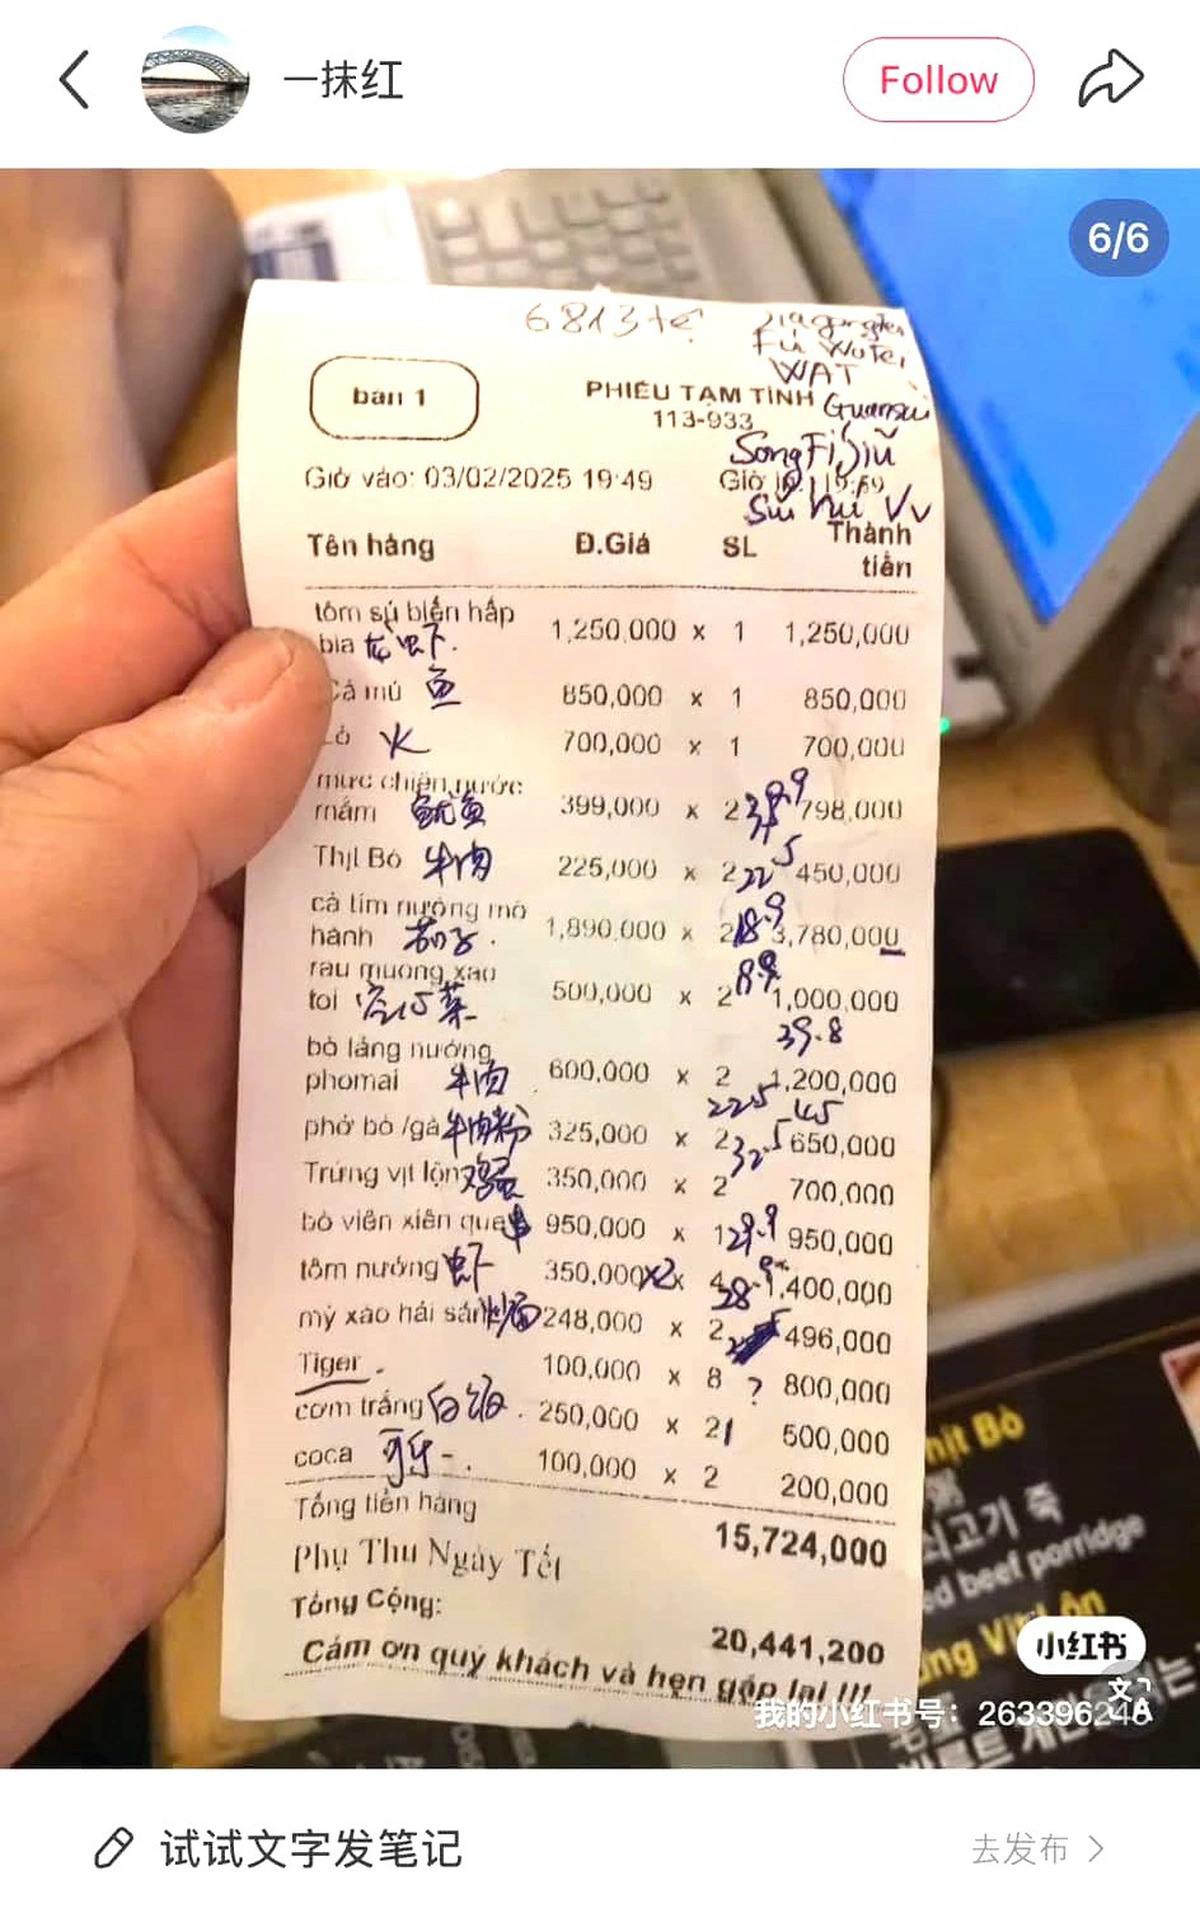 一抹红
Follow
6/6
6813 tệ
bàn 1
PHIẾU TẠM TÍNH
113-933
WAT
Giờ vào: 03/02/2025 19:49
Giờ
Tên hàng Đ.Giá SL Thành tiền
tôm sú biển hấp
bia 龙虾. 1,250,000 x 1 1,250,000
Cá mú 鱼 850,000 x 1 850,000
700,000 x 1 700,000
mực chiên nước
mắm 鱿鱼 399,000 x 2 798,000
Thịt Bò 牛肉 225,000 x 2 450,000
cà tím nướng mỡ
hành 茄子. 1,890,000 x 2 3,780,000
rau muống xào
tỏi 空心菜 500,000 x 2 1,000,000
39.8
bò lảng nướng
phomai 牛肉 600,000 x 2 1,200,000
phở bò /gà 牛肉粉 325,000 x 2 650,000
Trứng vịt lộn 鸡蛋 350,000 x 2 700,000
bò viên xiên que 串 950,000 x 1 950,000
tôm nướng 虾 350,000 x2 x 4 1,400,000
mỳ xào hải sản 炒面 248,000 x 2 496,000
Tiger 100,000 x 8 ? 800,000
cơm trắng 白饭. 250,000 x 2 500,000
coca 100,000 x 2 200,000
Tổng tiền hàng 15,724,000
Phụ Thu Ngày Tết
Tổng Cộng: 20,441,200
Cám ơn quý khách và hẹn gặp lại !!!
hịt Bò
쇠고기 죽
ed beef porridge
小红书
我的小红书号：263396248
试试文字发笔记
去发布